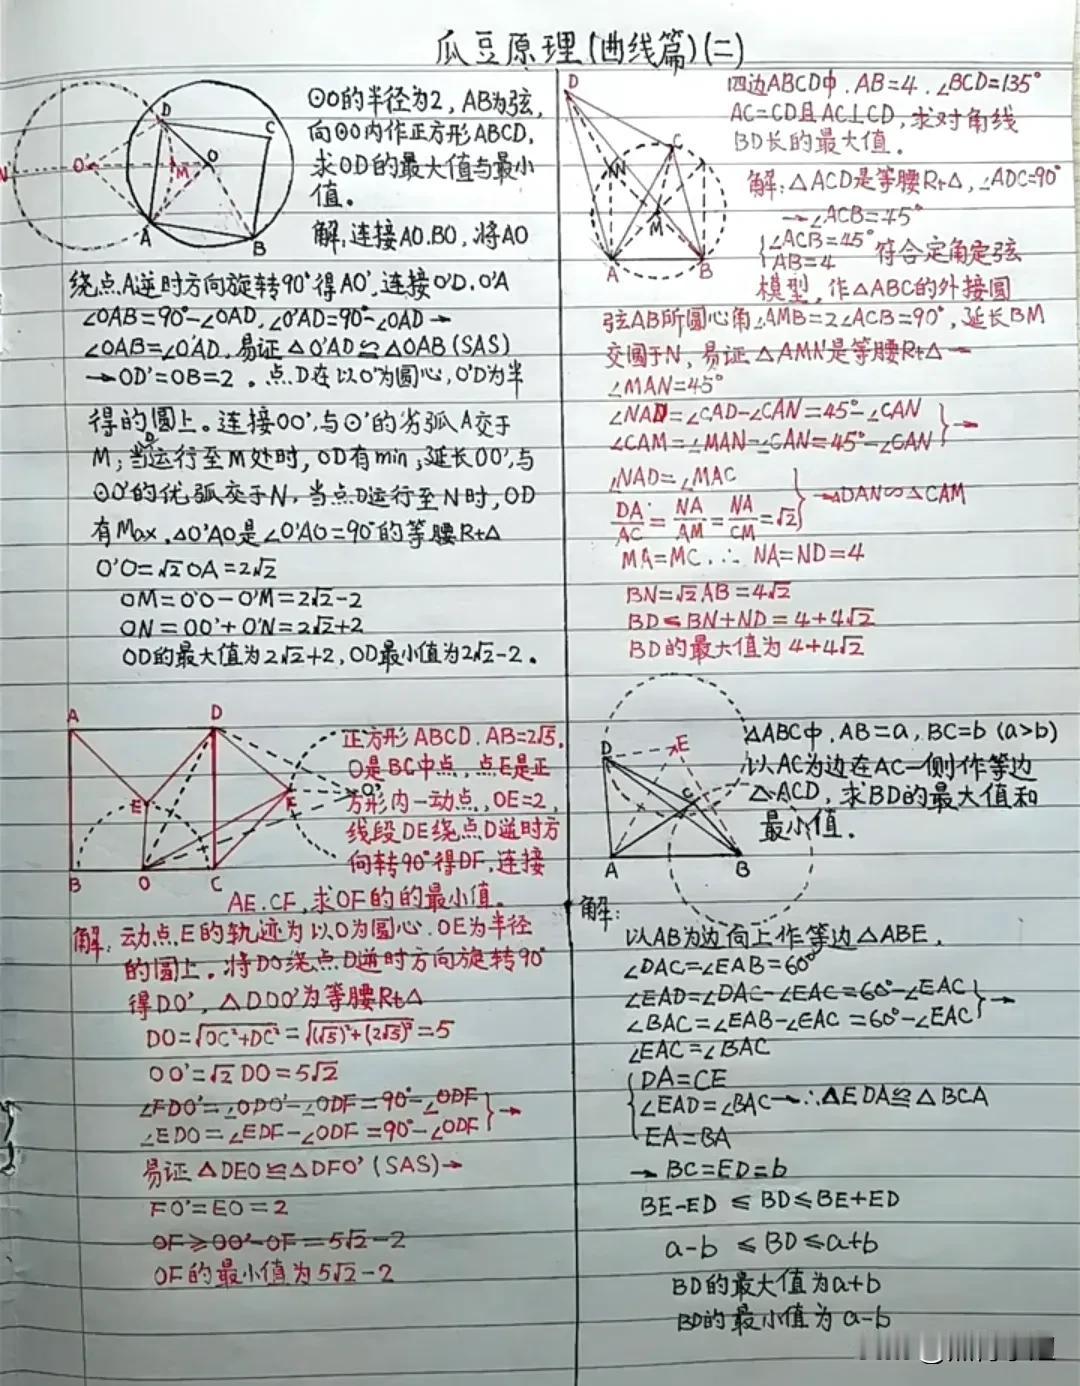 瓜豆原理(曲线篇)(二)
⊙O的半径为2,AB为弦,
向⊙O内作正方形ABCD,
求OD的最大值与最小
值。
解:连接AO.BO,将AO
绕点A逆时方向旋转90°得AO',连接O'D.O'A
∠OAB=90°-∠OAD,∠O'AD=90°-∠OAD→
∠OAB=∠O'AD,易证△O'AD≌△OAB(SAS)
→OD'=OB=2。点D在以O'为圆心,O'D为半
得的圆上。连接OO',与⊙'的劣弧A交于
M;当D运行至M处时,OD有min;延长OO',与
⊙O'的优弧交于N,当点D运行至N时,OD
有Max.△O'AO是∠O'AO=90°的等腰Rt△
O'O=√2OA=2√2
OM=O'O-O'M=2√2-2
ON=OO'+O'N=2√2+2
OD的最大值为2√2+2,OD最小值为2√2-2。
D
C
O'
M
O
N
A
B
四边ABCD中.AB=4.∠BCD=135°
AC=CD且AC⊥CD,求对角线
BD长的最大值。
解:△ACD是等腰Rt△,∠ADC=90°
→∠ACB=45°
{∠ACB=45° 符合定角定弦
AB=4
模型,作△ABC的外接圆
弦AB所圆心角∠AMB=2∠ACB=90°,延长BM
交圆于N,易证△AMN是等腰Rt△→
∠MAN=45°
∠NAD=∠CAD-∠CAN=45°-∠CAN
∠CAM=∠MAN-∠CAN=45°-∠CAN}→
∠NAD=∠MAC
DA/AC=NA/AM=NA/CM=√2}→△DAN∽△CAM
MA=MC.∴NA=ND=4
BN=√2AB=4√2
BD≤BN+ND=4+4√2
BD的最大值为4+4√2
D
C
N
M
A
B
A
D
E
F
O'
B
O
C
正方形ABCD.AB=2√5.
O是BC中点,点E是正
方形内一动点,OE=2,
线段DE绕点D逆时方
向转90°得DF,连接
AE.CF,求OF的的最小值。
解:动点E的轨迹为以O为圆心.OE为半径
的圆上。将DO绕点D逆时方向旋转90°
得DO',△DOO'为等腰Rt△
DO=√OC²+DC²=√(√5)²+(2√5)²=5
OO'=√2DO=5√2
∠FDO'=∠ODO'-∠ODF=90°-∠ODF
∠EDO=∠EDF-∠ODF=90°-∠ODF}→
易证△DEO≌△DFO'(SAS)→
FO'=EO=2
OF≥OO'-OF=5√2-2
OF的最小值为5√2-2
D
E
C
A
B
△ABC中.AB=a,BC=b(a>b)
以AC为边在AC一侧作等边
△ACD,求BD的最大值和
最小值.
解:
以AB为边向上作等边△ABE.
∠DAC=∠EAB=60°
∠EAD=∠DAC-∠EAC=60°-∠EAC
∠BAC=∠EAB-∠EAC=60°-∠EAC}→
∠EAC=∠BAC
{DA=CE
∠EAD=∠BAC→∴△EDA≌△BCA
EA=BA
→BC=ED=b
BE-ED≤BD≤BE+ED
a-b≤BD≤a+b
BD的最大值为a+b
BD的最小值为a-b